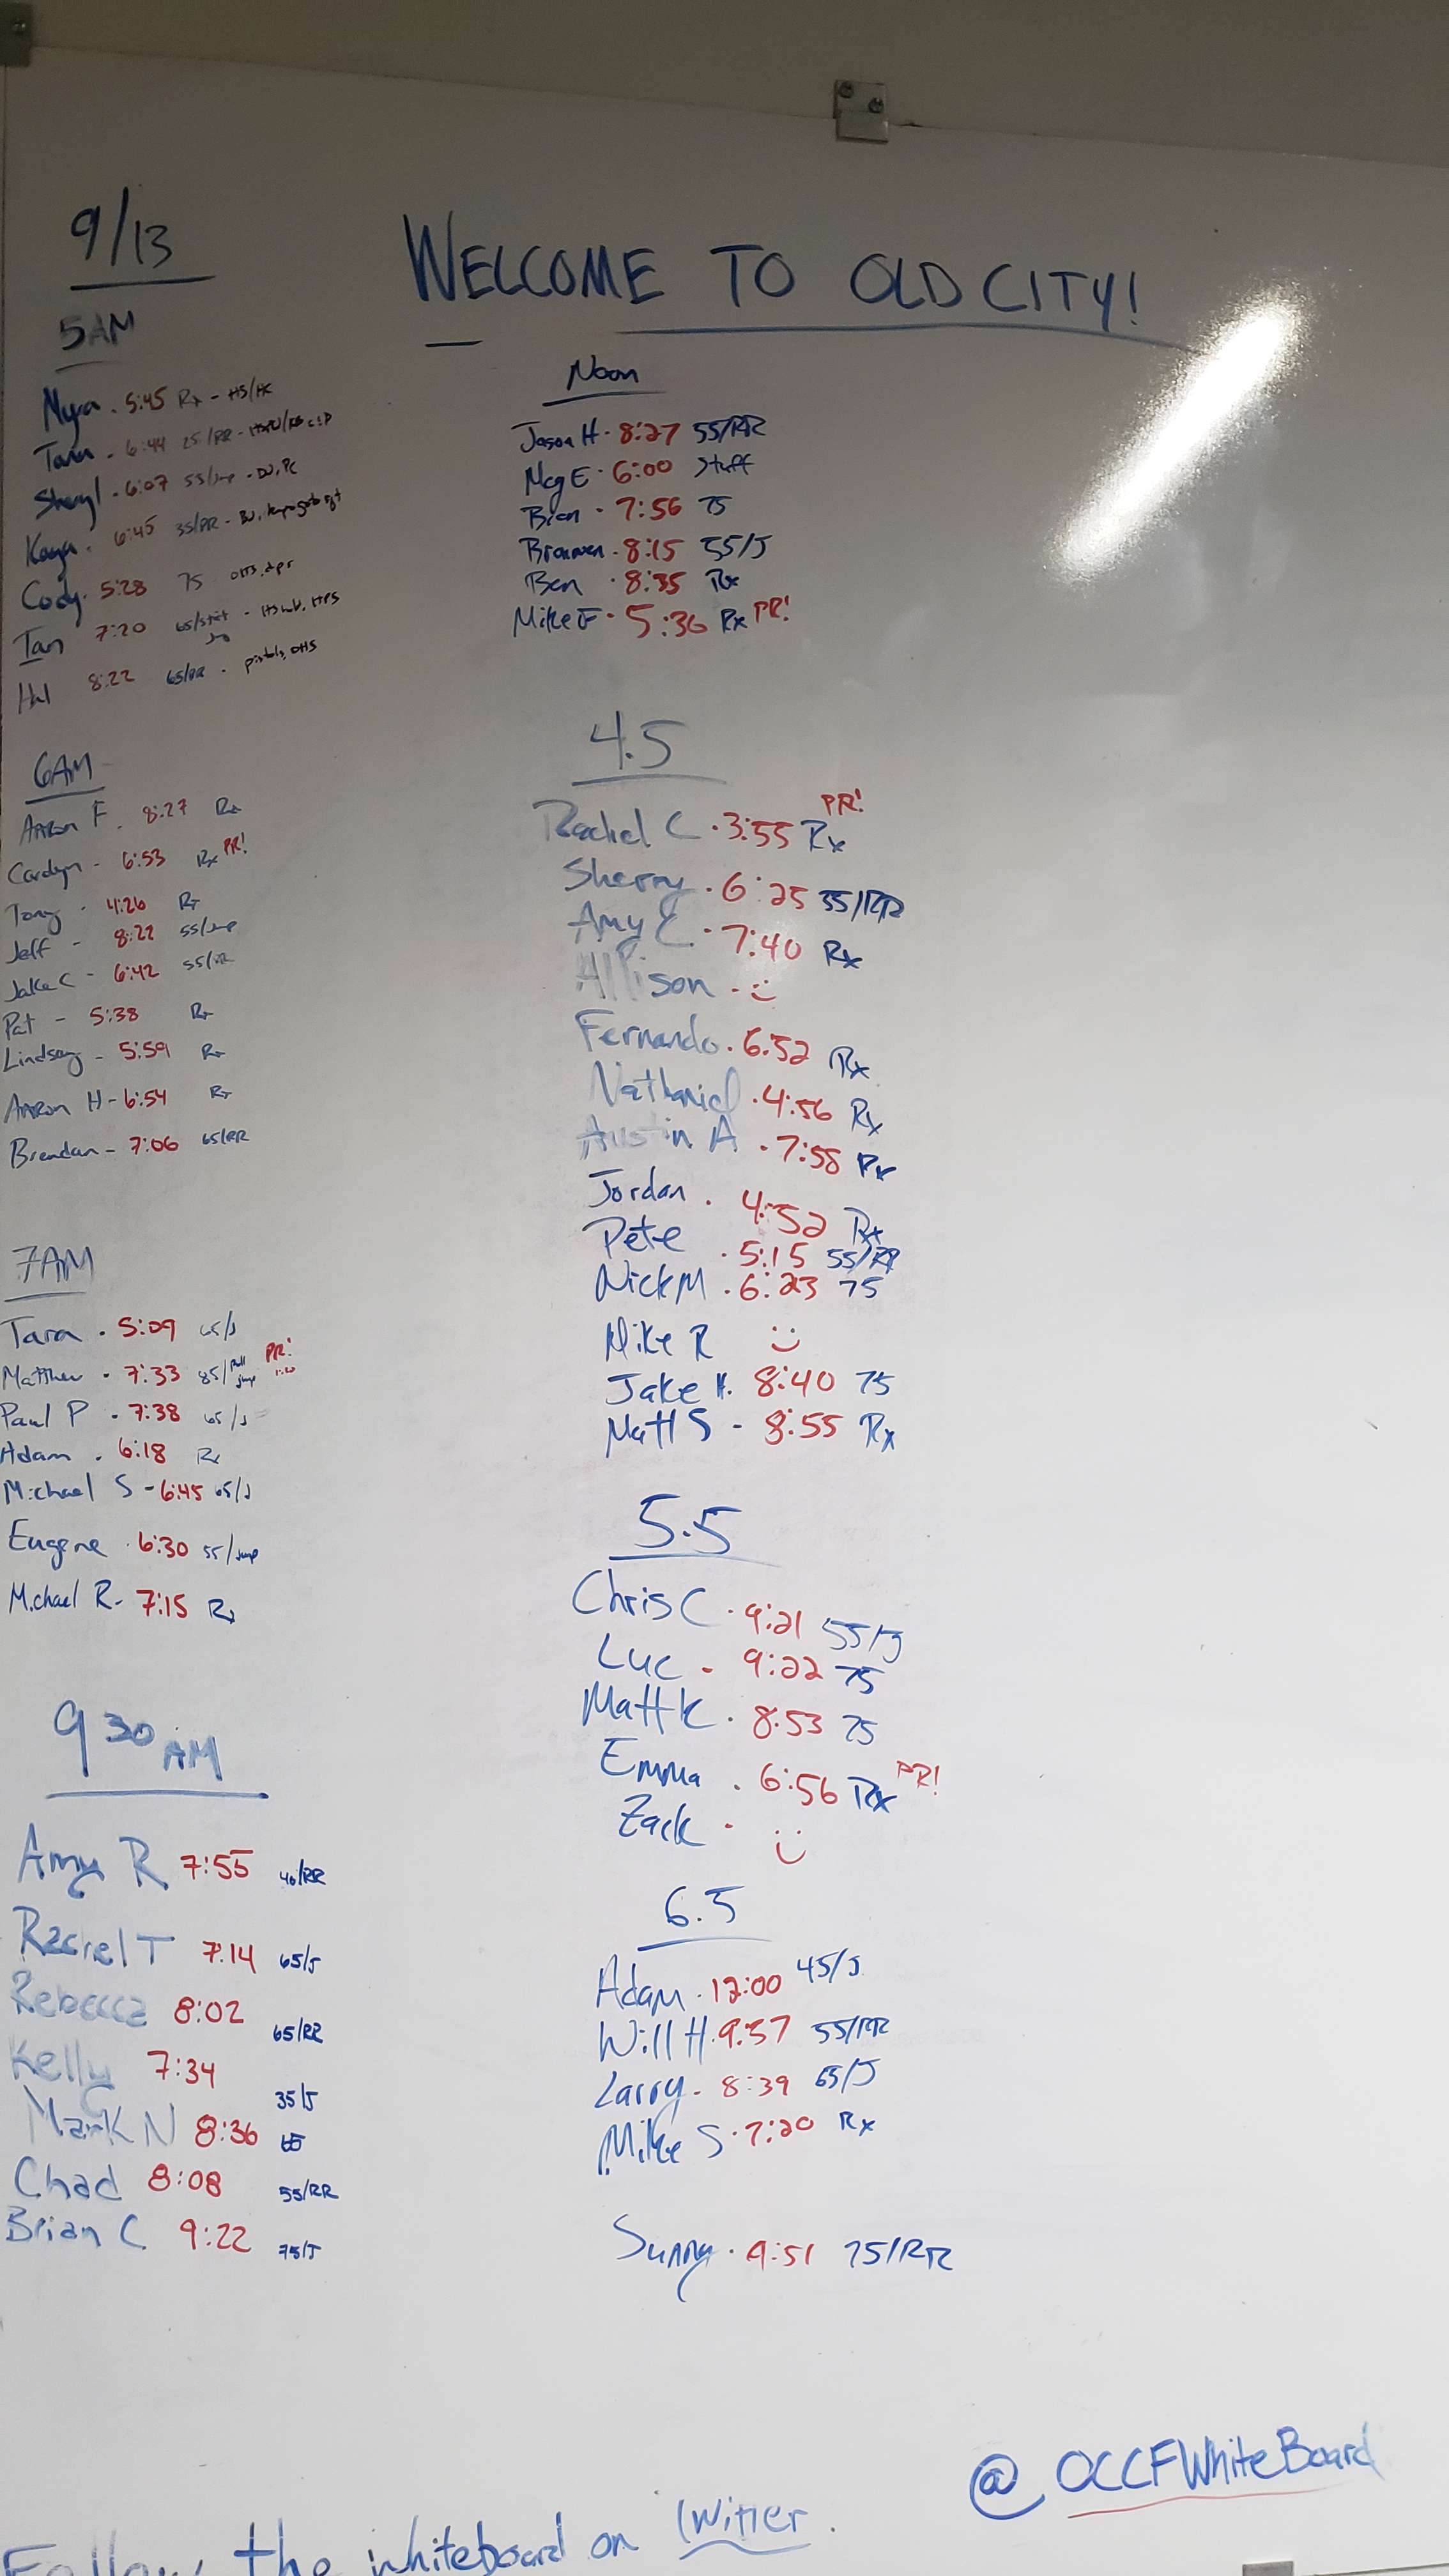 9/13
WELCOME TO OLD CITY!
5AM
Myra . 5:45 Rx - HS/HC
Tara - 6:44 25/RR -
Sheryl . 6:07 55/Jump - DU, PC
Kaya . 6:45 35/RR - DU,
Cody . 5:28 75 OHS,
Ian 7:20 65/
Hal 8:22 65/RR - pistols, OHS
6AM
Aaron F . 8:27 Rx
Carolyn - 6:53 Rx PR!
Tony - 4:26 Rx
Jeff - 8:22 55/Jump
Jake C - 6:42 55/RR
Pat - 5:38 Rx
Lindsay - 5:59 Rx
Aaron H - 6:54 Rx
Brendan - 7:06 65/RR
7AM
Tara . 5:09 65/J
Matthew . 7:33 85/pull jump PR!
Paul P . 7:38 65/J
Adam . 6:18 Rx
Michael S - 6:45 65/J
Eugene . 6:30 55/Jump
Michael R - 7:15 Rx
9 30 AM
Amy R 7:55 40/RR
Rachel T 7:14 65/J
Rebecca 8:02 65/RR
Kelly 7:34 35/J
Mark N 8:36
Chad 8:08 55/RR
Brian C 9:22 75/J
Noon
Jason H - 8:27 55/RR
Meg E - 6:00 Stuff
Brian - 7:56 75
Bronwen . 8:15 55/J
Ben . 8:35 Rx
Mike F - 5:36 Rx PR!
4.5
Rachel C . 3:55 Rx PR!
Sherry . 6:25 35/RR
Amy E . 7:40 Rx
Allison - :)
Fernando . 6:52 Rx
Nathaniel . 4:56 Rx
Austin A . 7:58 Rx
Jordan . 4:52 Rx
Pete . 5:15 55/RR
Nick M . 6:23 75
Mike R :)
Jake H. 8:40 75
Matt S - 8:55 Rx
5.5
Chris C . 9:21 55/J
Luc . 9:22 75
Matt K . 8:53 75
Emma . 6:56 Rx PR!
Zack . :)
6.5
Adam . 12:00 45/J
Will H . 9:57 55/RR
Larry - 8:39 65/J
Mike S . 7:20 Rx
Sunny . 9:51 75/RR
@OCCFWhiteBoard
Follow the whiteboard on Twitter.